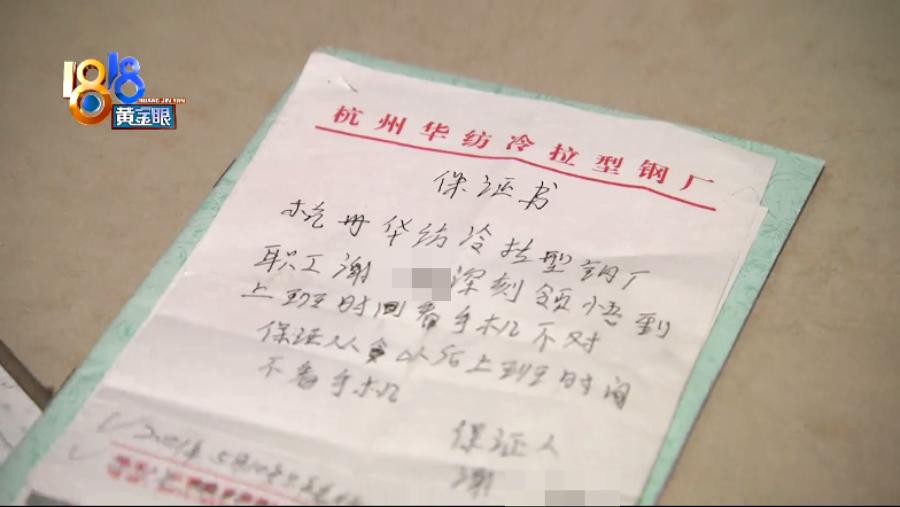 1818
HUANG JIN YAN
黄金眼
杭州华纺冷拉型钢厂
保证书
杭州华纺冷拉型钢厂
职工谢 深刻领悟到
上班时间看手机不对
保证从今以后上班时间
不看手机
保证人
谢